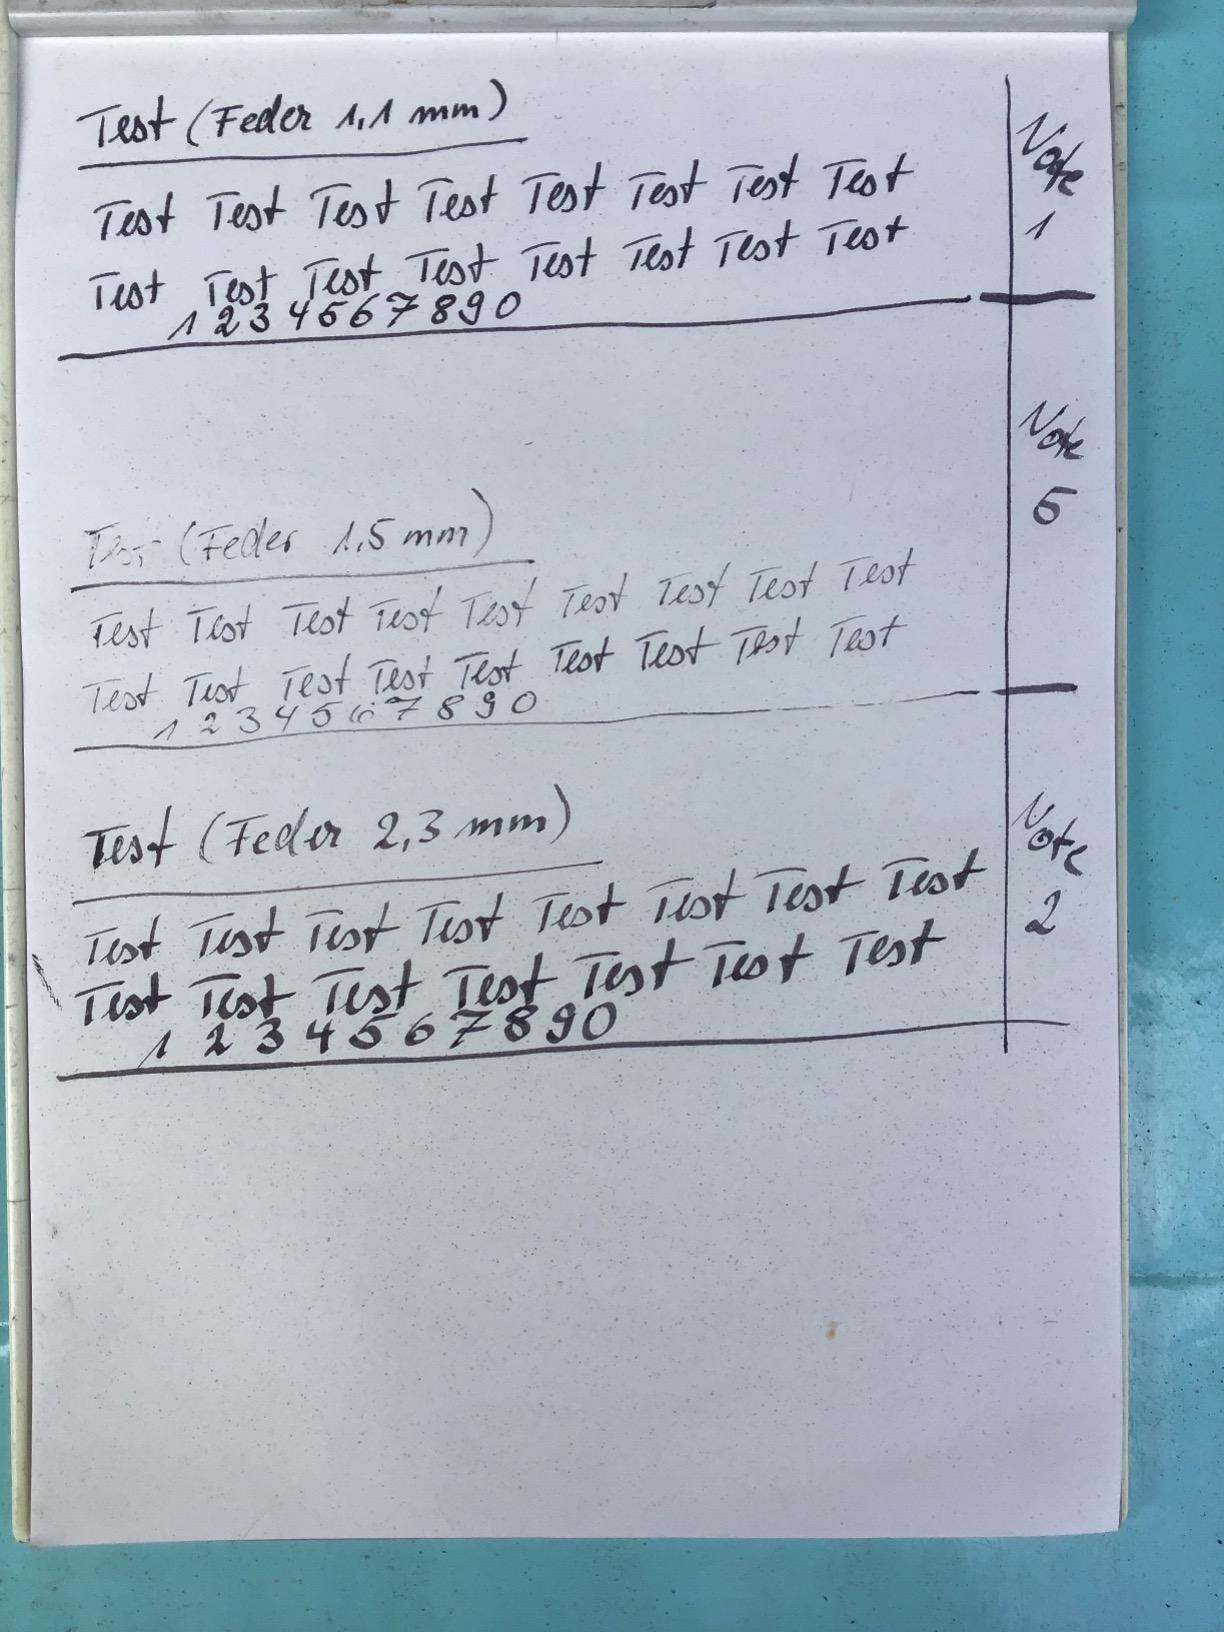 Test (Feder 1,1 mm)
Note
1
Test Test Test Test Test Test Test Test
Test Test Test Test Test Test Test Test
1 2 3 4 5 6 7 8 9 0
Note
5
Test (Feder 1,5 mm)
Test Test Test Test Test Test Test Test Test
Test Test Test Test Test Test Test Test Test
1 2 3 4 5 6 7 8 9 0
Test (Feder 2,3 mm)
Note
2
Test Test Test Test Test Test Test Test
Test Test Test Test Test Test Test
1 2 3 4 5 6 7 8 9 0